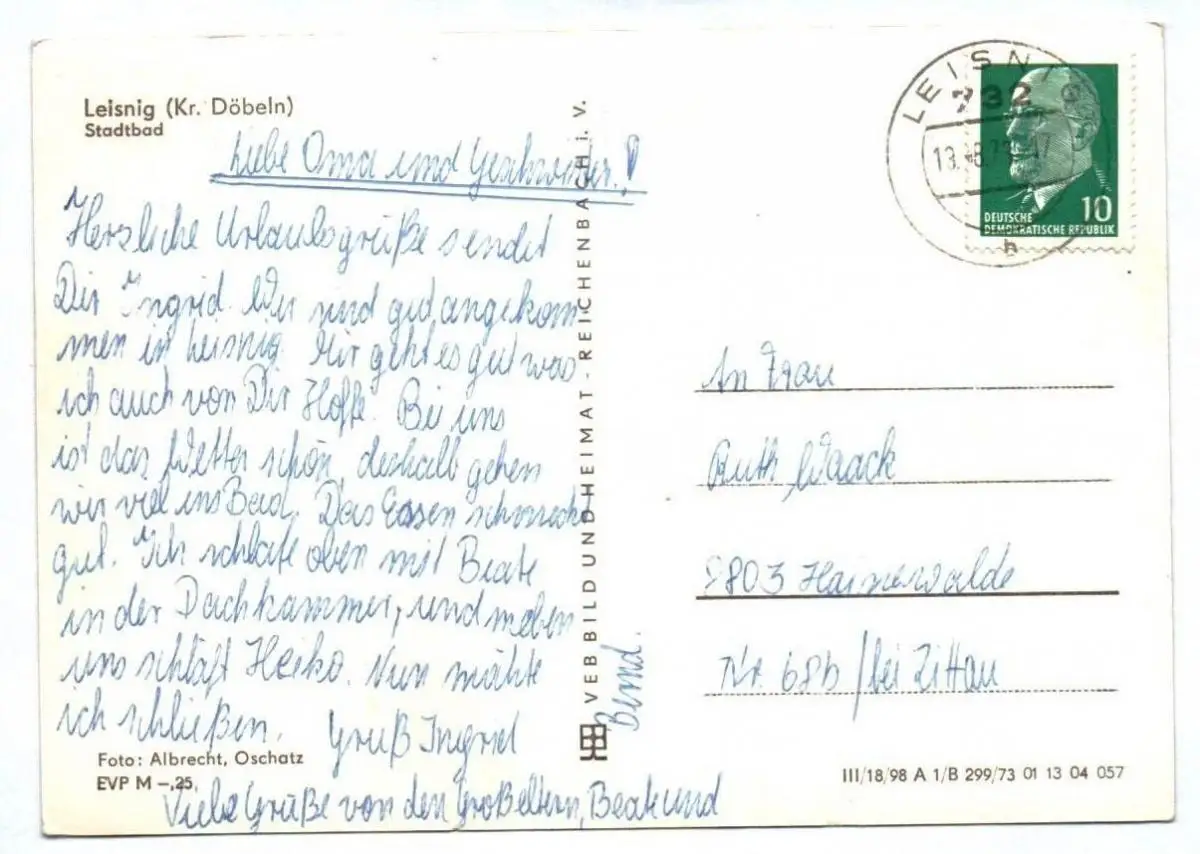 Leisnig (Kr. Döbeln)
Stadtbad
Liebe Oma und Geschwister!
Herzliche Urlaubsgrüße sendet
Dir Ingrid. Wir sind gut angekom
men in Leisnig. Mir geht es gut was
ich auch von Dir Hoffe. Bei uns
ist das Wetter schön, deshalb gehen
wir viel ins Bad. Das Essen schmeckt
gut. Ich schlafe oben mit Beate
in der Dachkammer, und neben
uns schläft Heiko. Nun möhte
ich schließen.
Gruß Ingrid
Viele Grüße von den Großeltern, Beate und
Bernd.
Foto: Albrecht, Oschatz
EVP M –,25
VEB BILD UND HEIMAT · REICHENBACH i. V.
LEISNIG
732
13. 8.73
h
10
DEUTSCHE
DEMOKRATISCHE REPUBLIK
An Frau
Ruth Waack
8803 Hainewalde
Nr. 68b / bei Zittau
III/18/98 A 1/B 299/73 01 13 04 057